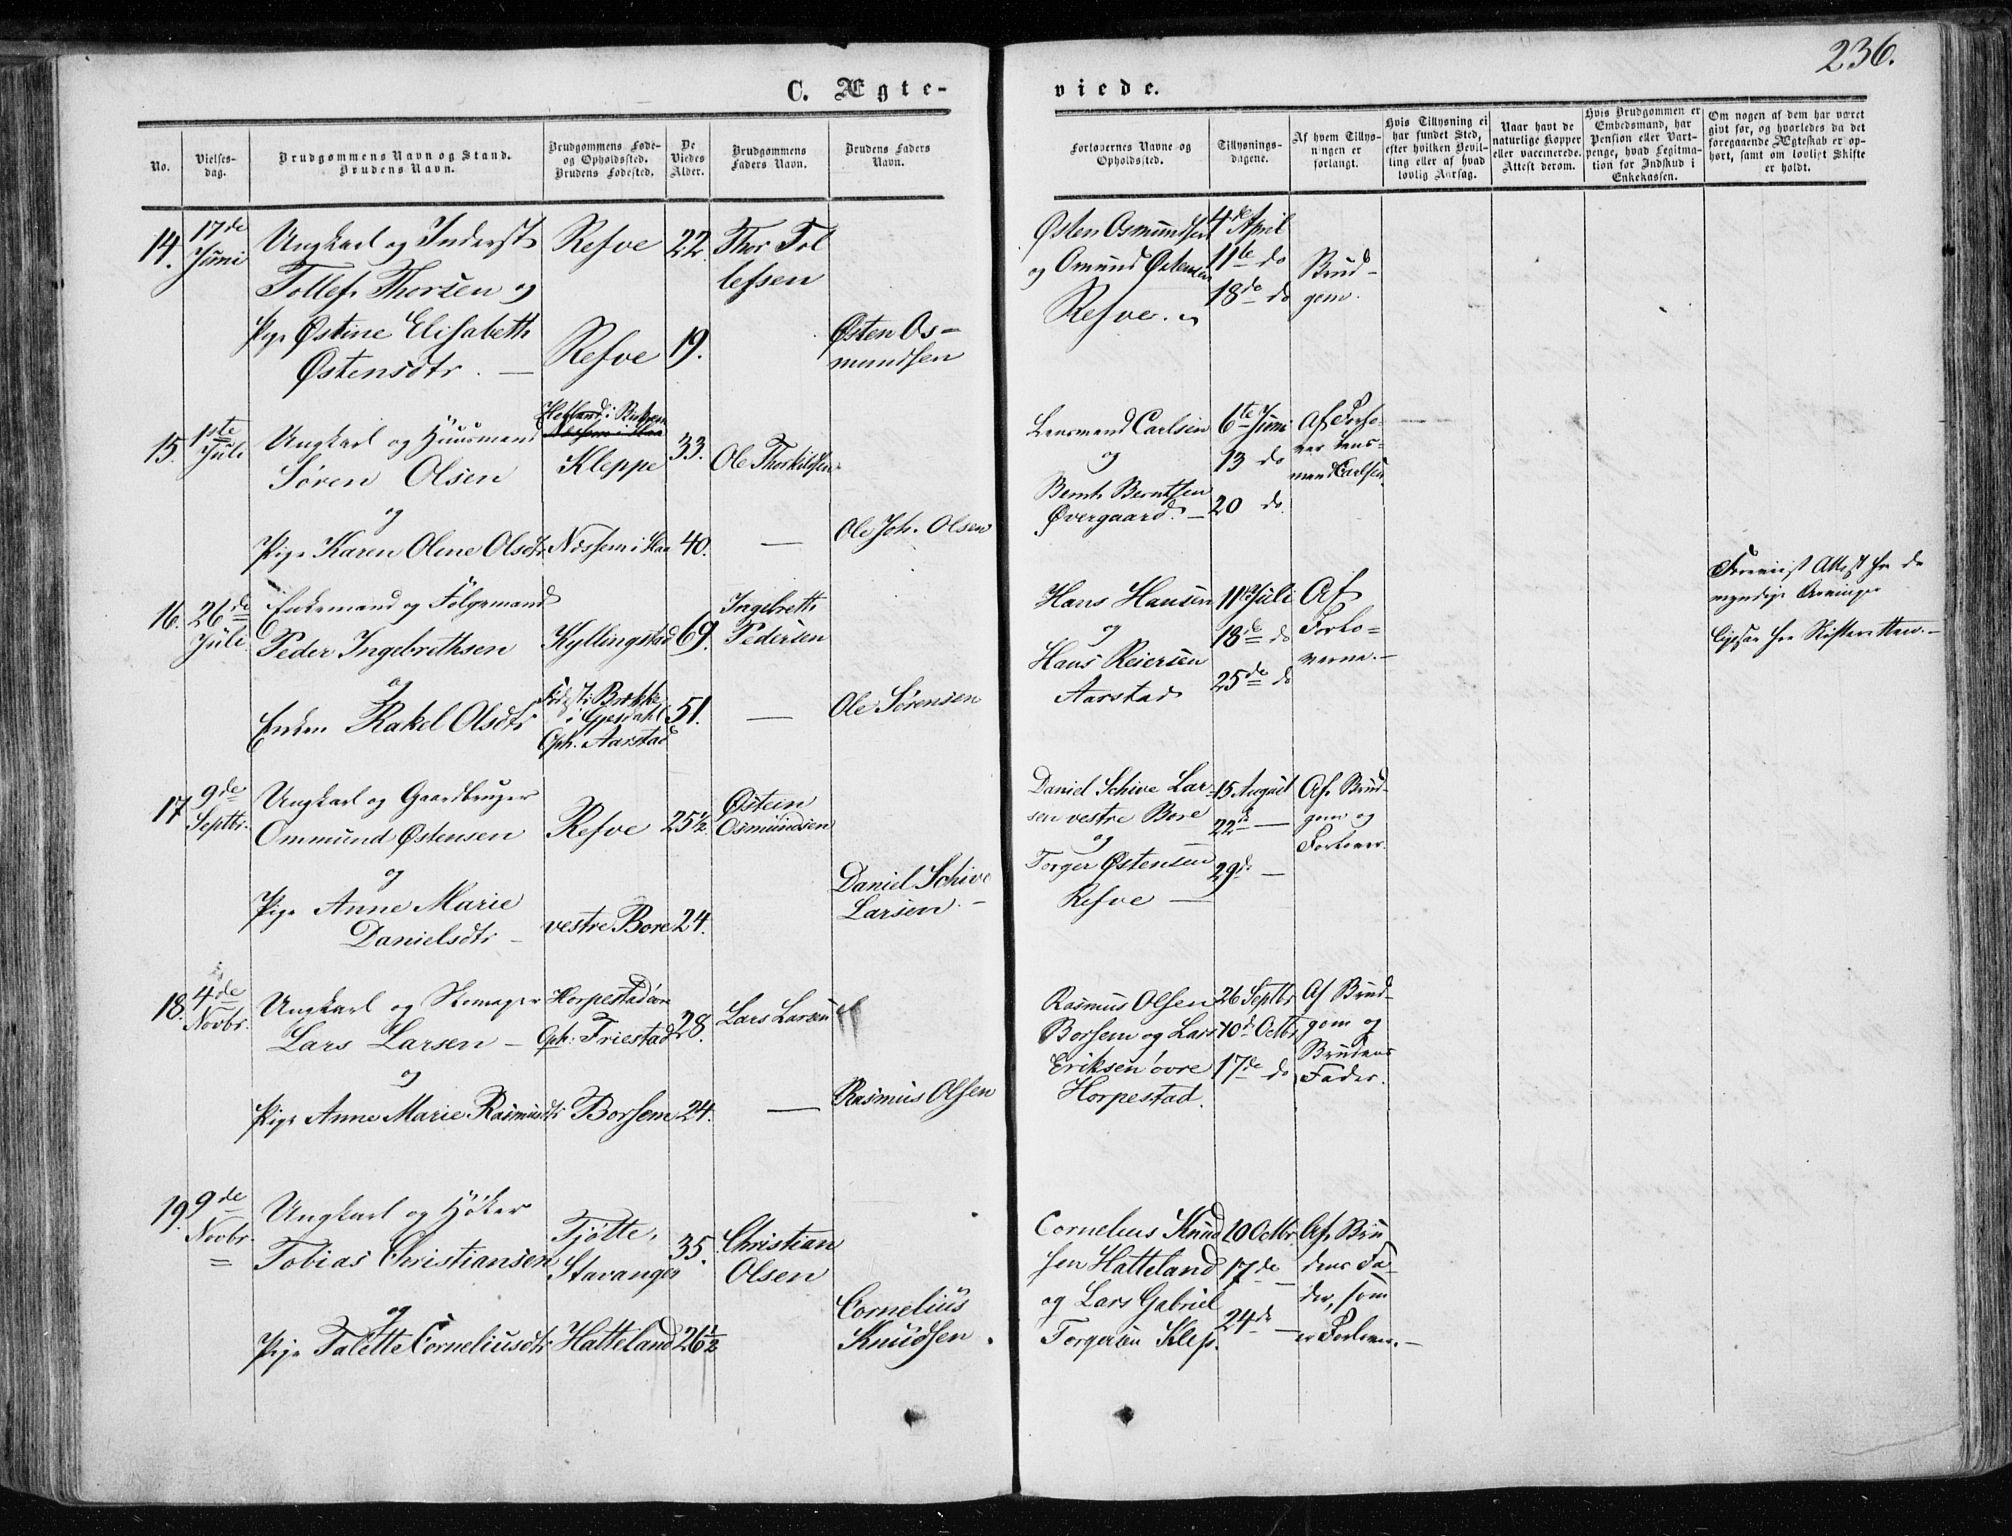 236.
C. Ægte-
viede.
No.
Vielses-
dag.
Brudgommens Navn og Stand.
Brudens Navn.
Brudgommens Føde-
og Opholdssted.
Brudens Fødested.
De
Viedes
Alder.
Brudgommens
Faders Navn.
Brudens Faders
Navn.
Forlovernes Navne og
Opholdssted.
Tillysnings-
dagene.
Af hvem Tillys-
ningen er
forlangt.
Hvis Tillysning ei
har fundet Sted,
efter hvilken Bevil-
ling eller af hvad
lovlig Aarsag.
Naar havt de
naturlige Kopper
eller vaccinerede.
Attest derom.
Hvis Brudgommen er
Embedsmand, har
Pension eller Vart-
penge, hvad Legitima-
tion for Indskud i
Enkekassen.
Om nogen af dem har været
givt før, og hvorledes da det
foregaaende Ægteskab er op-
hørt, samt om lovligt Skifte
er holdt.
14.
17de
Juni
Ungkarl og Inderst
Tollef Thorsen og
Pige Østine Elisabeth
Østensdtr. —
Refve
Refve
22.
19.
Thor Tol
lefsen
Østen Os-
mundsen
Østen Osmundsen
og Omund Østensen
Refve.
4de April
11te do
18de do
Brud-
gom.
15.
1ste
Juli
Ungkarl og Huusmand
Søren Olsen
og
Pige Karen Oline Olsdtr
Kleppe
Næsheim i Haa
33.
40.
Ole Thorkildsen
—
Ole Joh. Olsen
Lensmand Carlsen
og
Bernh. Berntsen
Øvergaard. —
6te Juni
13 do
20 do.
Af Forlo-
ver Lens-
mand Carlsen.
16.
26de
Juli
Enkemand og Følgemand
Peder Ingebrethsen
og
Enken Rakel Olsdtr
Kyllingstad
Fødest: Brekke
i Gjesdahl
Oph. Aarstad
69.
51.
Ingebreth
Pedersen
—
Ole Sørensen
Hans Hansen
og
Hans Reiersen
Aarstad
11te Juli
18de do
25de do
Af
Forlo-
verne. —
Foreviist Attest fra de
myndige Arvinger
ligesaa fra Skifteretten. —
17
9de
Septbr.
Ungkarl og Gaardbruger
Ommund Østensen
og
Pige Anne Marie
Danielsdtr —
Refve
vestre Bore
25½.
24.
Østein
Osmundsen
Daniel Schive
Larsen. —
Daniel Schive Lar-
sen vestre Bore
og
Torger Østensen
Refve —
15 August
22de —
29de —
Af Brud-
gom og
Forlover.
18.
4de
Novbr.
Ungkarl og Skomager
Lars Larsen —
og
Pige Anne Marie Rasmusdtr
Horpestad øvre
Oph: Friestad
Borsem
28.
24.
Lars Larsen
—
Rasmus Olsen
Rasmus Olsen
Borsem og Lars
Eriksen øvre
Horpestad.
26 Septbr
10de Octbr
17de do
Af Brud-
gom og
Brudens
Fader.
19.
9de
Novbr.
Ungkarl og Høker
Tobias Christiansen
og
Pige Talette Corneliusdtr
Tjøtte,
Stavanger
Hatteland
35.
26½
Christian
Olsen
Cornelius
Knudsen.
Cornelius Knud
sen Hatteland
og Lars Gabriel
Torgersen Klep.
10 Octbr.
17de —
24de —
Af Bru
dens Fa-
der, som
er Forlover. —